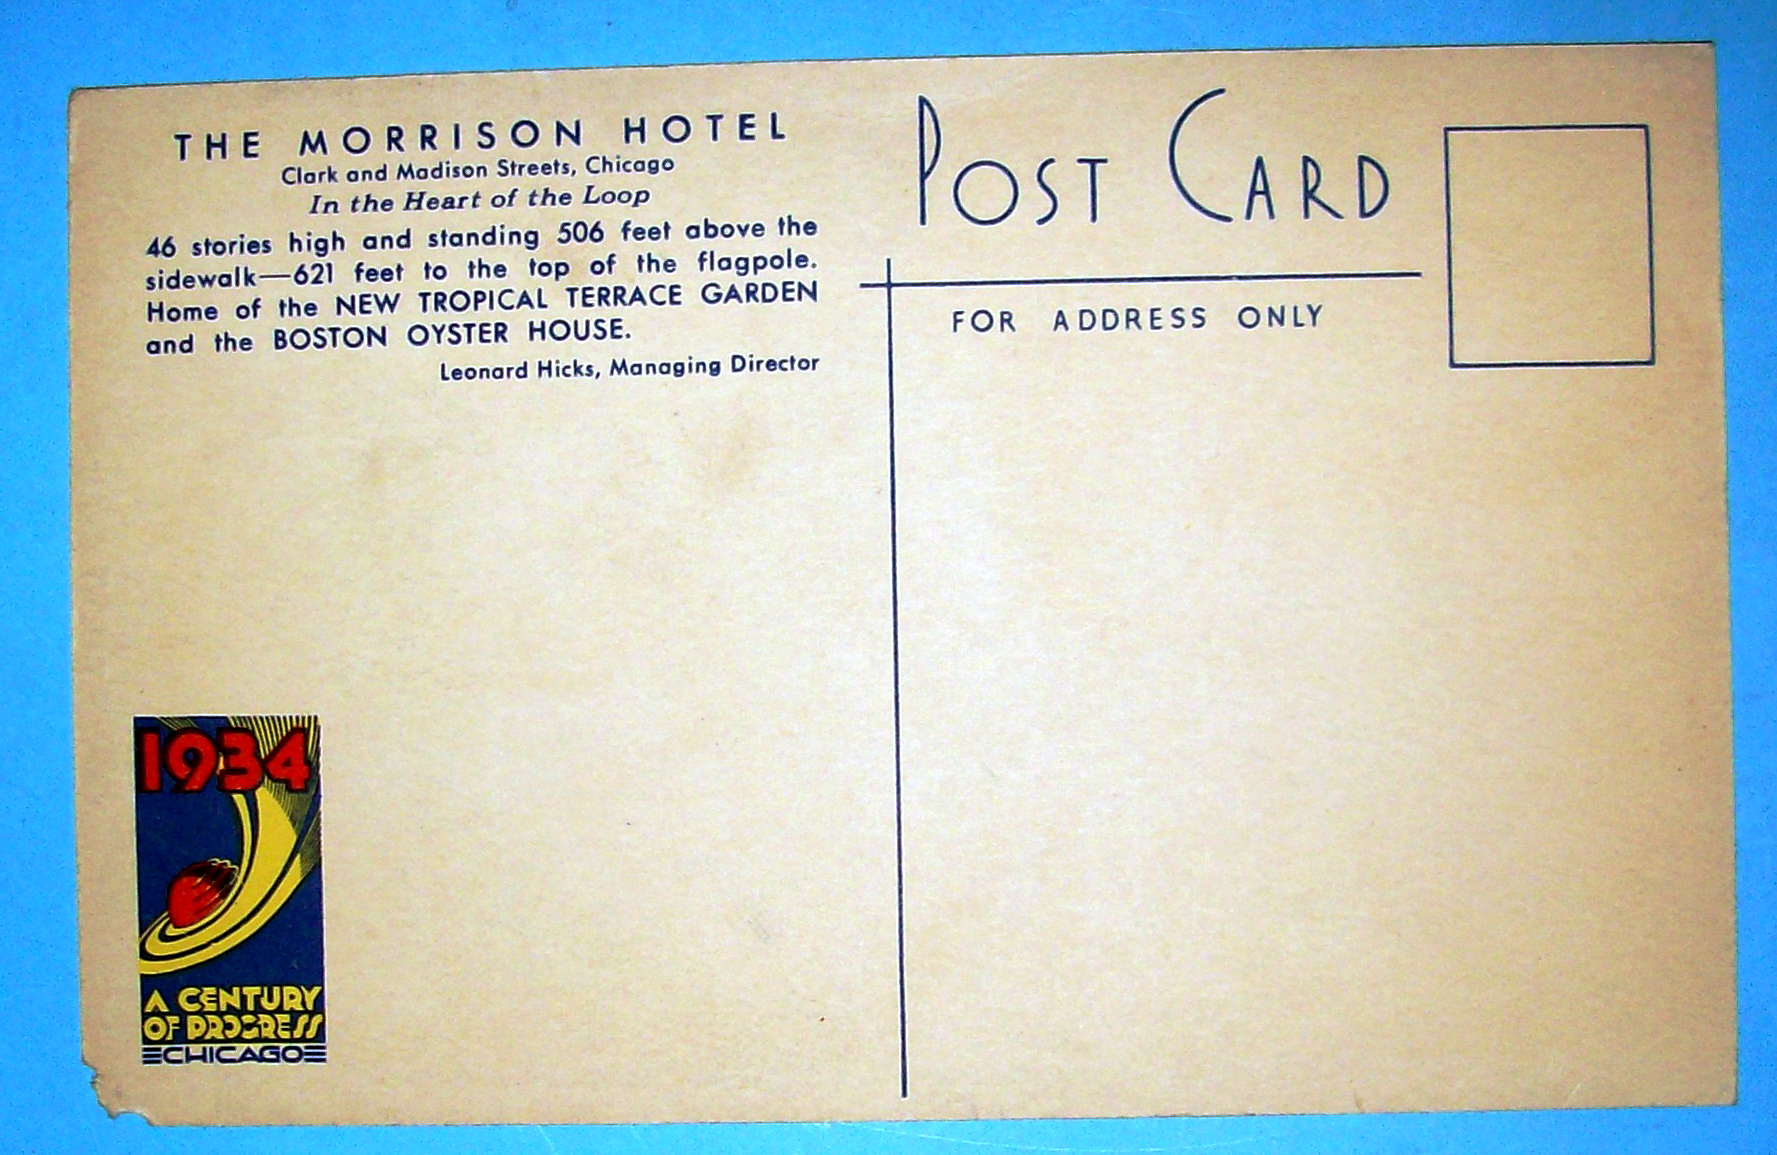 THE MORRISON HOTEL
Clark and Madison Streets, Chicago
In the Heart of the Loop
46 stories high and standing 506 feet above the
sidewalk—621 feet to the top of the flagpole.
Home of the NEW TROPICAL TERRACE GARDEN
and the BOSTON OYSTER HOUSE.
Leonard Hicks, Managing Director
POST CARD
FOR ADDRESS ONLY
1934
A CENTURY
OF PROGRESS
CHICAGO